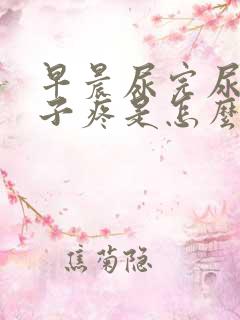 早晨尿完尿
子疼是怎麽
焦菊隐